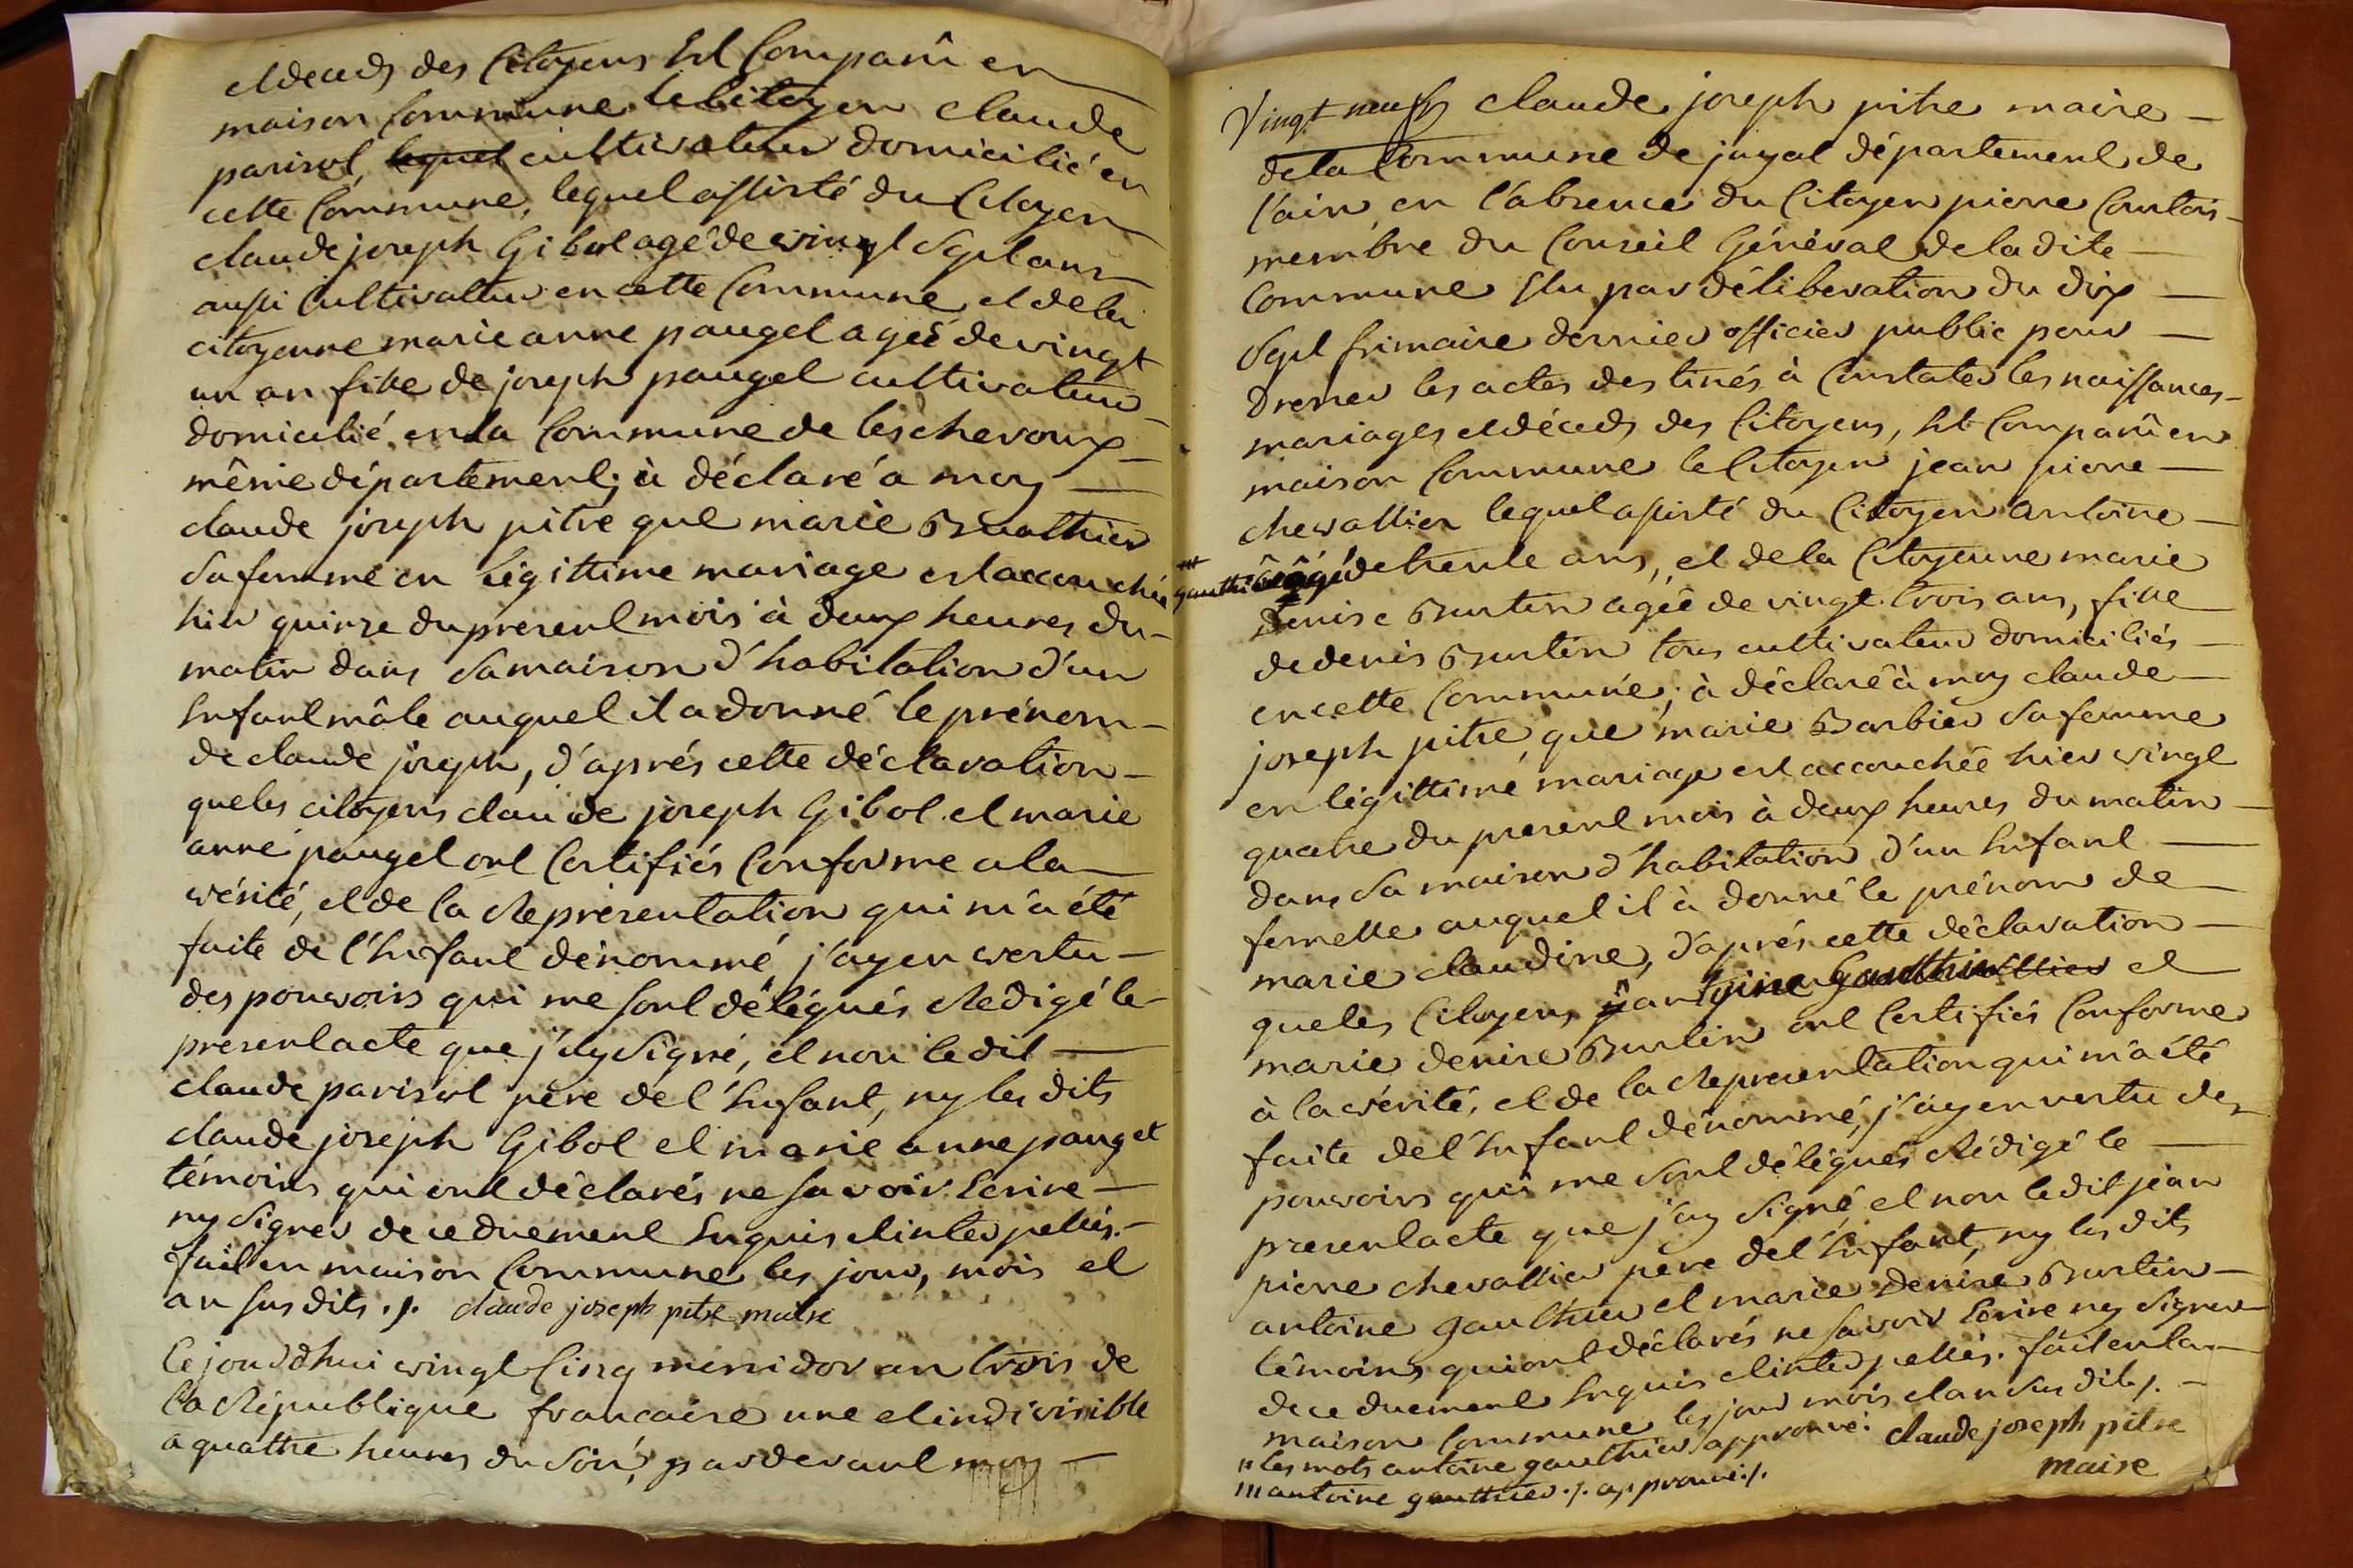 et deceds des Citoyens Est Comparû en
maison Commune le Citoyen claude
parisot, lequel cultivateur domicilié en
cette Commune, lequel assisté du Citoyen
claude joseph Gibot agé de vingt Sept ans
aussi Cultivateur en cette Commune et de la
citoyenne marie anne pauget agée de vingt
un an fille de joseph pauget cultivateur
domicilié en la Commune de les cheroux
même département; à déclaré a moy
claude joseph pitre que marie Buathier
Sa femme en légittime mariage est accouchée
hier quinze du present mois à deux heures du
matin dans Sa maison d'habitation d'un
Enfant mâle auquel il a donné le prénom
de claude joseph, d'aprés cette déclaration
que les citoyens claude joseph Gibot et marie
anne pauget ont Certifiés Conforme a la
vérité, et de la Représentation qui m'a été
faite de l'Enfant dénommé, j'ay en vertu
des pouvoirs qui me sont délégués Rédigé le
present acte que j'ay Signé, et non le dit
claude parisot père de l'Enfant, ny les dits
claude joseph Gibot et marie anne pauget
témoins qui ont déclarés ne savoir Ecrire
ny Signer de ce duement Enquis et interpellés.
fait en maison Commune les jour, mois et
an sus dits ./. claude joseph pitre maire
Cejourd'hui vingt Cinq messidor an trois de
la République francaise une et indivisible
a quatre heures du Soir, pardevant moy
Vingt neuf claude joseph pitre maire
de la Commune de jayat département de
l'ain, en l'absence du Citoyen pierre Contois
membre du Conseil Général de la dite
Commune Elu par délibération du dix
Sept frimaire dernier officier public pour
Dresser les actes destinés à Constater les naissances
mariages et décéds des Citoyens, Est Comparû en
maison Commune le Citoyen jean pierre
chevallier lequel assisté du Citoyen antoine
gauthier âgé de trente ans, et de la Citoyenne marie
Denise Burtin agée de vingt trois ans, fille
de denis Burtin tous cultivateurs domiciliés
en cette Commune; à déclaré à moy claude
joseph pitre, que marie Barbier Sa femme
en légittime mariage est accouchée hier vingt
quatre du present mois à deux heures du matin
dans Sa maison d'habitation, d'un Enfant
femelle auquel il à donné le prénom de
marie claudine, d'aprés cette déclaration
que les Citoyens antoine Gauthier et
marie denise Burtin ont Certifiés Conforme
à la vérité, et de la Representation qui m'a été
faite de l'Enfant dénommé, j'ay en vertu des
pouvoirs qui me Sont délégués Rédigé le
present acte que j'ay Signé et non le dit jean
pierre chevallier père de l'Enfant, ny les dits
antoine gauthier et marie Denise Burtin
témoins qui ont déclarés ne savoir Ecrire ny Signer
de ce duement Enquis et interpellés. fait en la
maison Commune les jour mois et an sus dits ./.
"les mots antoine gauthier approuvé. claude joseph pitre
''' antoine gauthier ./. approuvé ./. maire